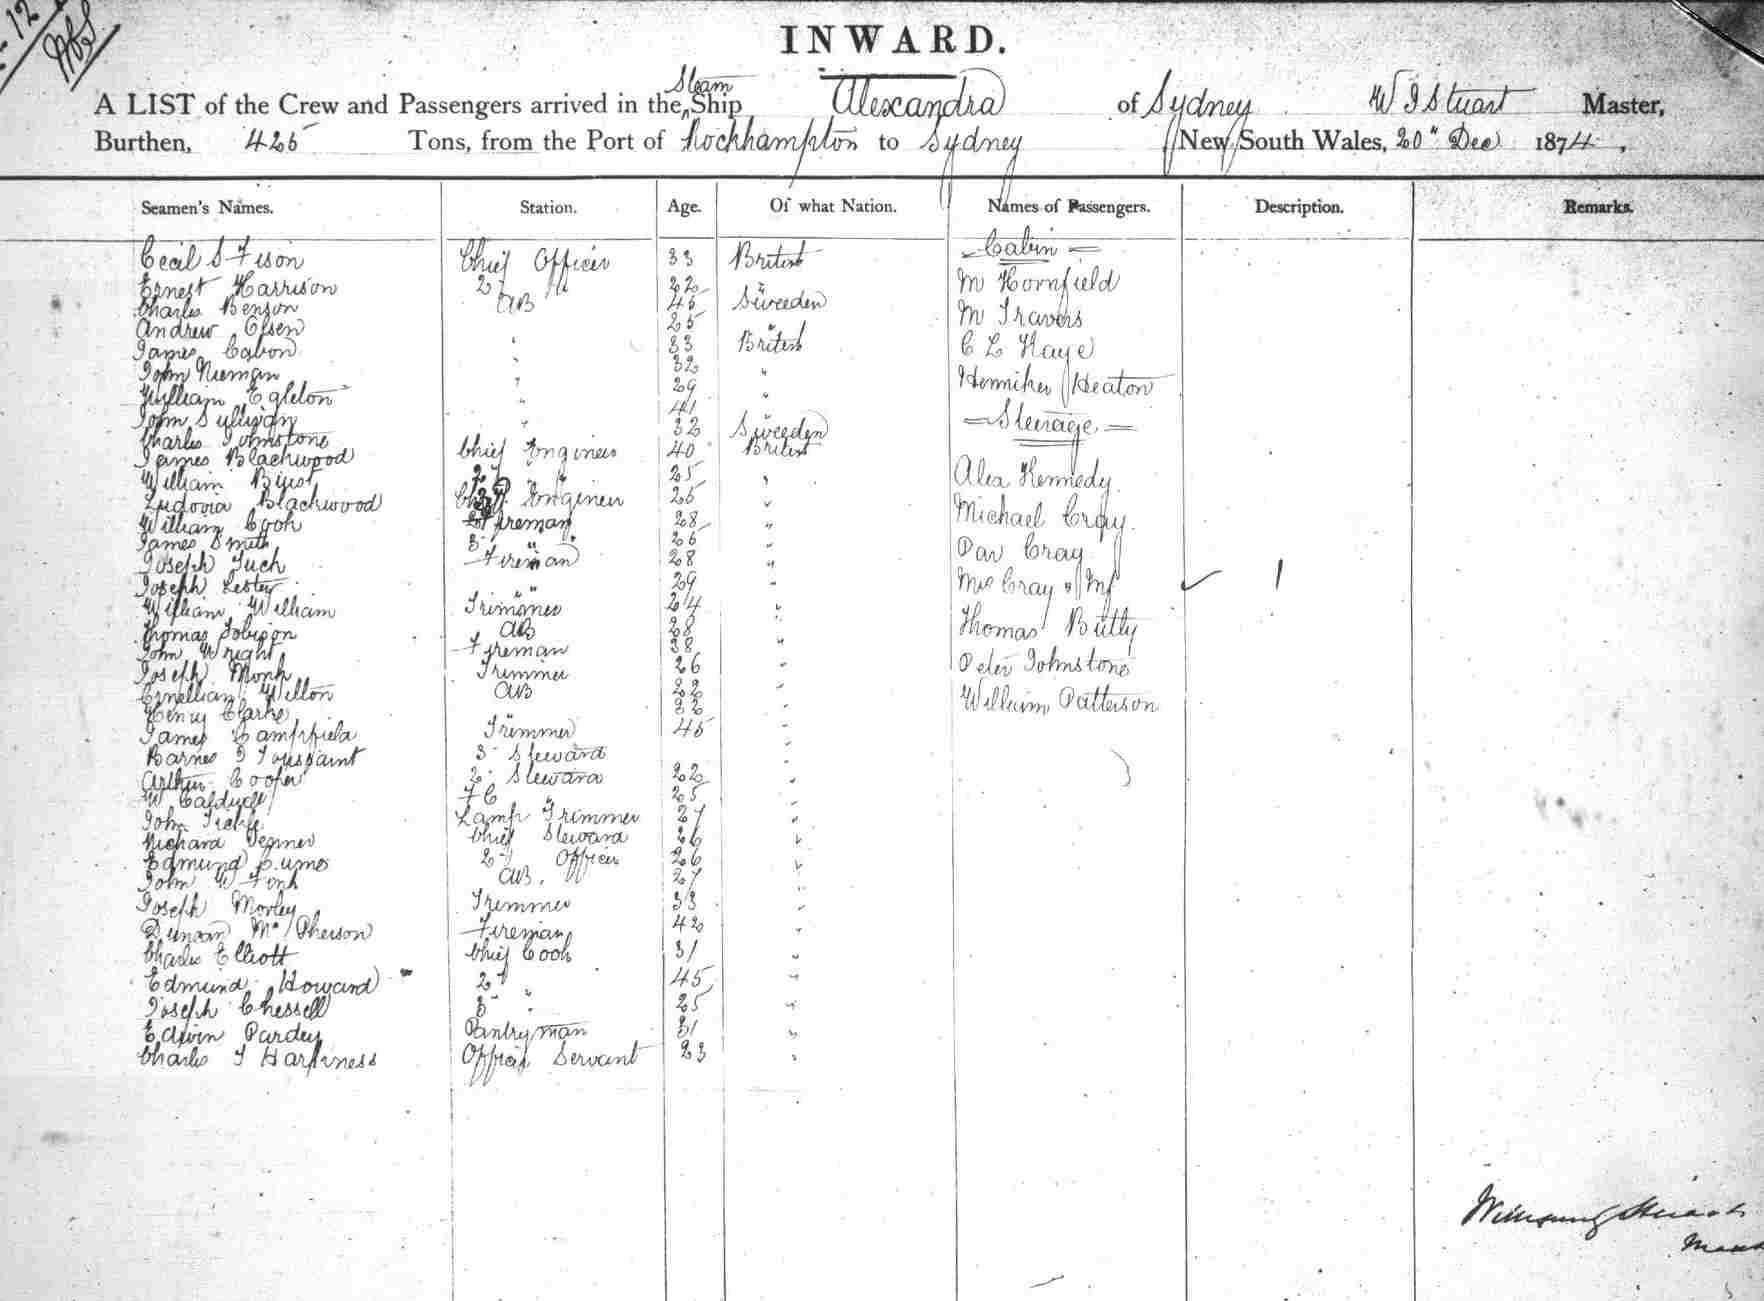 INWARD.
A LIST of the Crew and Passengers arrived in the Steam Ship Alexandra of Sydney W J Stuart Master,
Burthen, 425 Tons, from the Port of Rockhampton to Sydney New South Wales, 20" Dec 1874,
Seamen's Names. Station. Age. Of what Nation. Names of Passengers. Description. Remarks.
Cecil S Fison Chief Officer 33 British
Ernest Harrison 2d " 22 "
Charles Benson AB 45 Sweeden
Andrew Olsen " 25 "
James Cabon " 33 British
John Nieman " 32 "
William Egleton " 29 "
John Sullivan " 41 "
Charles Johnstone " 32 Sweeden
James Blackwood Chief Engineer 40 British
William 2d " 25 "
Ludovia Blackwood Engineer 25 "
William Cook fireman 28 "
James Smith 3 " 25 "
Joseph Tuch Fireman 28 "
Joseph Lester " 29 "
William William Trimmer 24 "
Thomas Tobison AB 28 "
John Wright Fireman 38 "
Joseph Monk Trimmer 26 "
Cornellian Wilton AB 22 "
Henry Clarke " 32 "
James Campfield Trimmer 45 "
Barnes J Toussaint 3 Steward "
Arthur Cooper 2 Steward 22 "
W Caldwell 25 "
John Lamp Trimmer 27 "
Richard Chief Steward 26 "
Edmund 2d Officer 26 "
John W Fonk AB. 27 "
Joseph Morley Trimmer 33 "
Duncan McPherson Fireman 42 "
Charles Elliott Chief Cook 31 "
Edmund Howard 2d " 45 "
Joseph Chessell 3 " 25 "
Edwin Pardey Pantryman 31 "
Charles J Harkness Officer Servant 23 "
Cabin
M Hornfield
M Travers
C L Kaye
Henniker Heaton
Steerage
Alex Kennedy
Michael Cray
Pat Cray
Mrs Cray
Thomas Butty
Peter Johnstone
William Patterson
Stuart